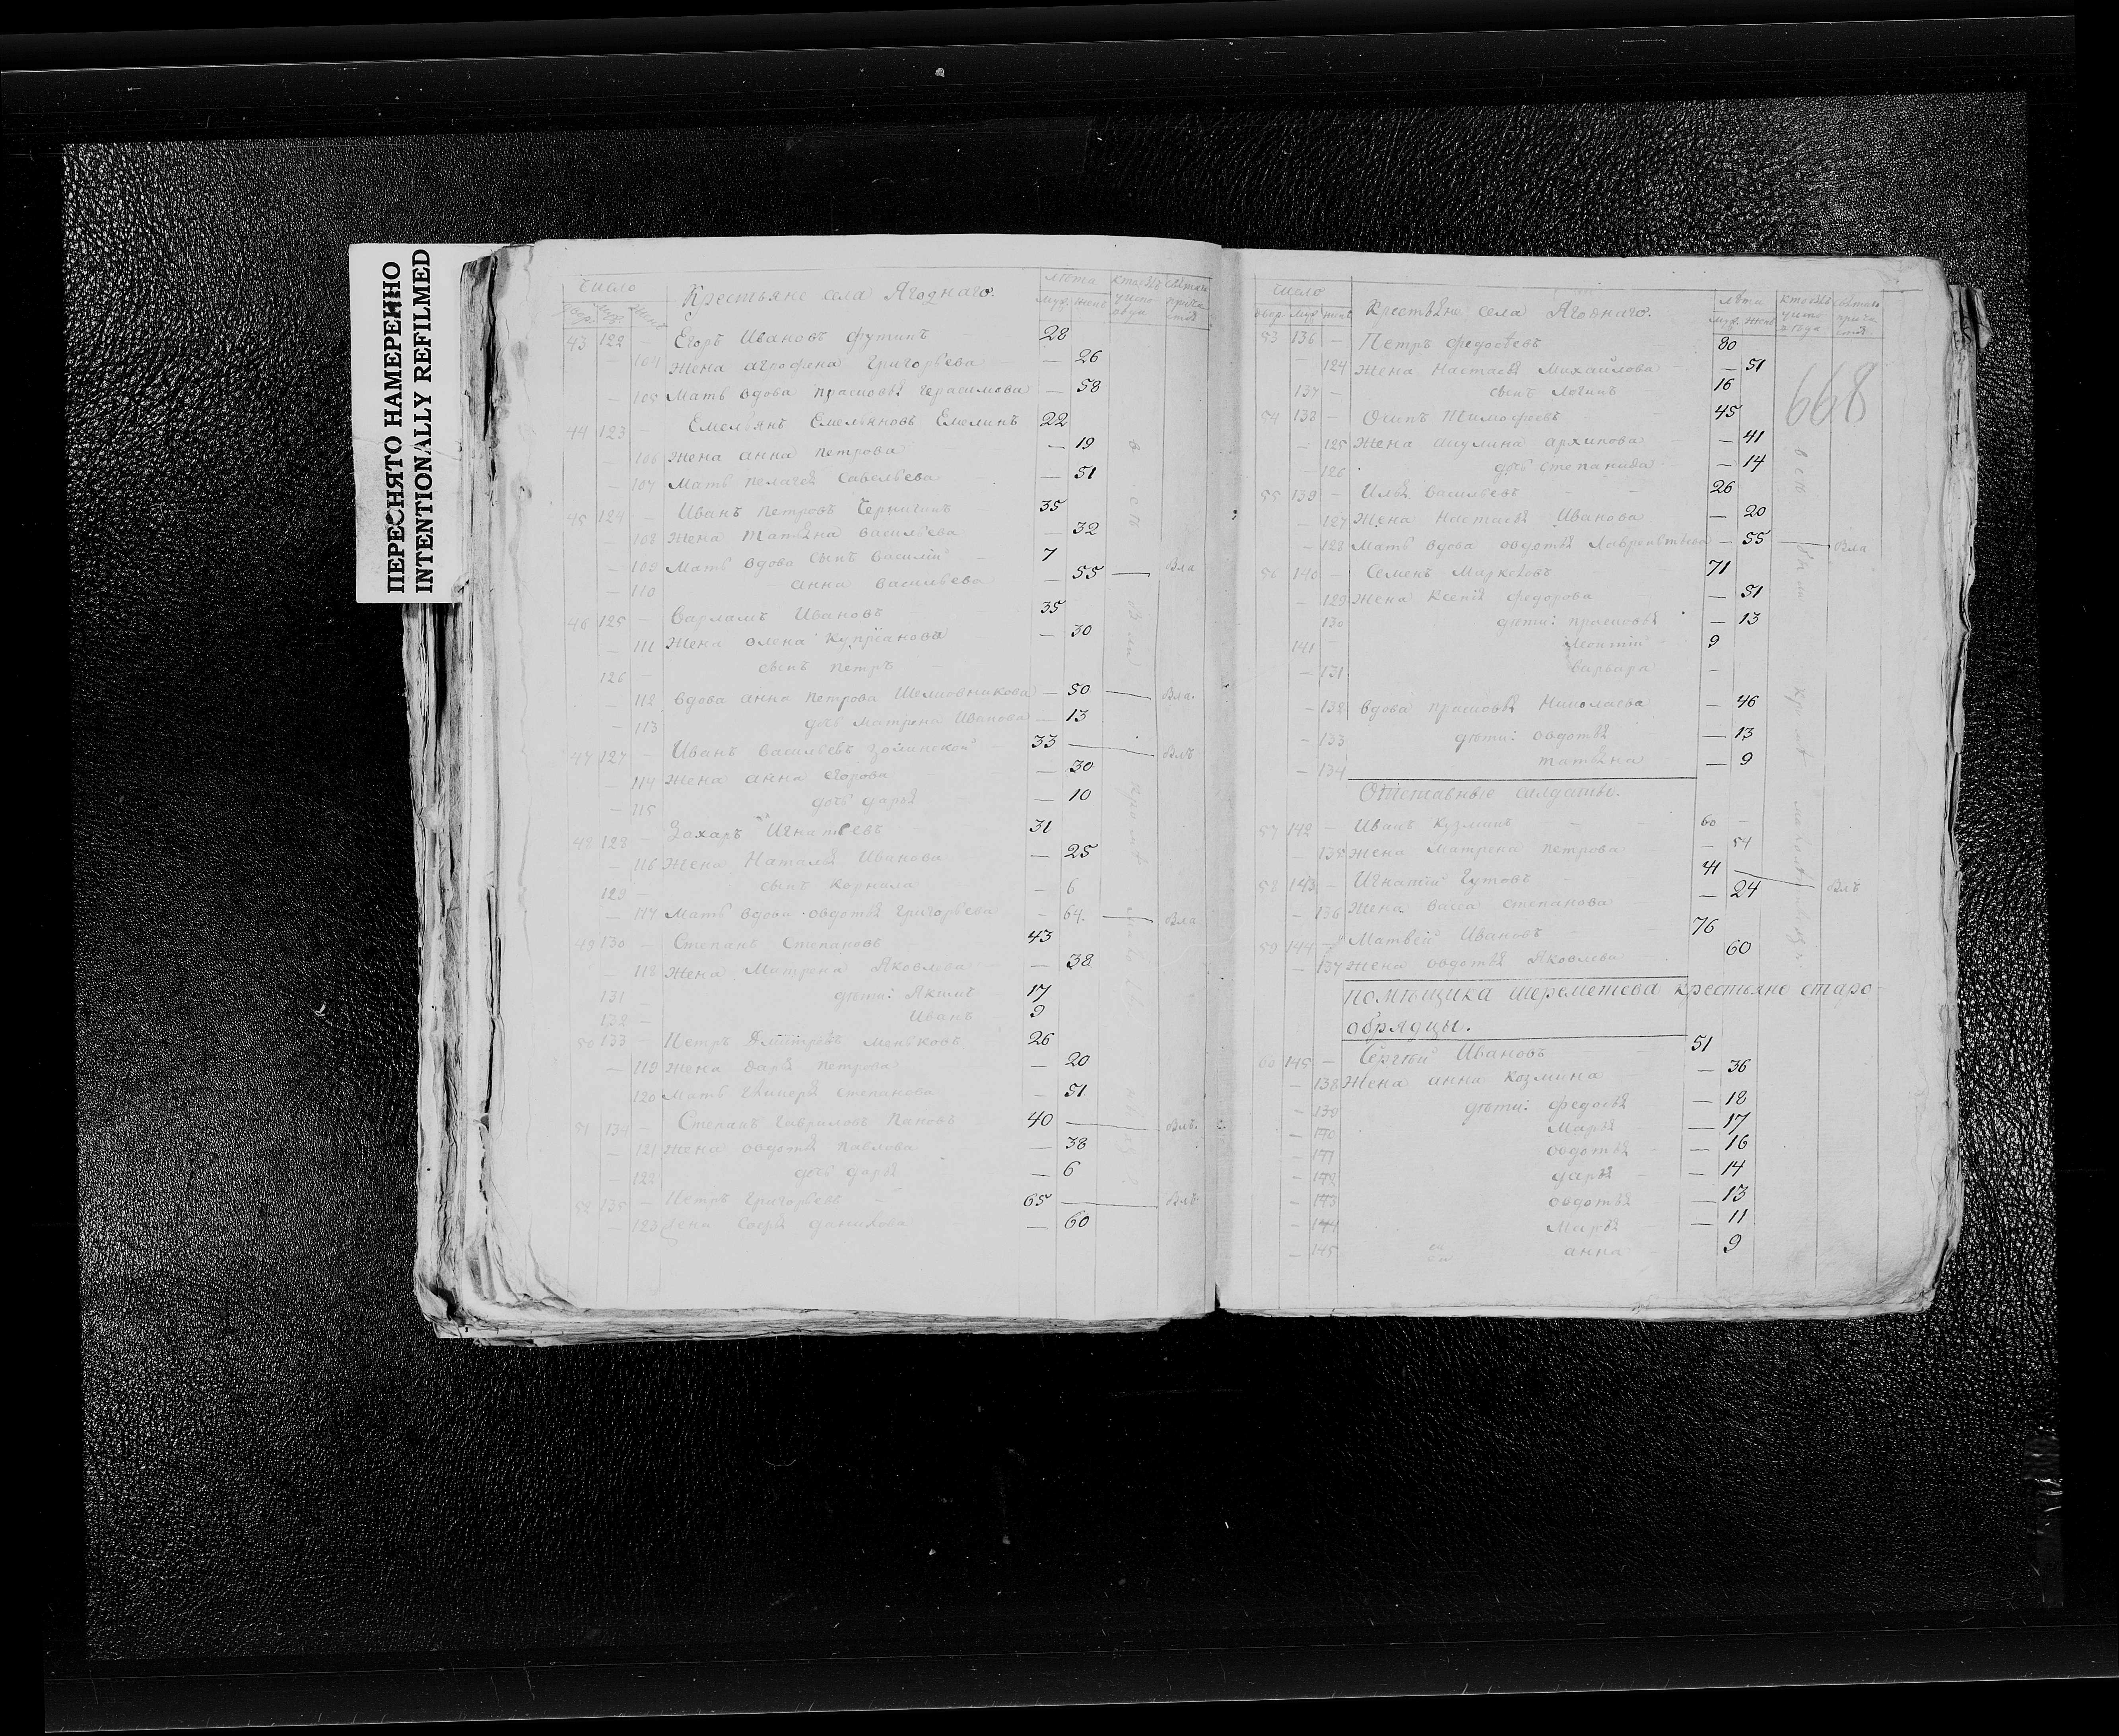 ПЕРЕСНЯТО НАМЕРЕННО
INTENTIONALLY REFILMED
Число
Крестьяне села Ягоднаго.
лѣта
муж. жен.
43 122 — Егоръ Ивановъ Футинъ 28
— 104 жена Агрофена Григорьева — 26
— 105 Мать вдова Прасковья Герасимова — 58
44 123 Емельянъ Емельяновъ Емелинъ 22
— 106 жена Анна Петрова — 19
— 107 Мать Пелагея Савельева — 51
45 124 — Иванъ Петровъ 35
— 108 жена Татьяна Васильева — 32
— 109 Мать вдова сынъ Василій 7
— 110 Анна Васильева — 55 — Вла
46 125 — Варламъ Ивановъ 35
— 111 жена Олена Купрѣанова — 30
126 — сынъ Петръ
— 112 вдова Анна Петрова — 50 — Вла.
— 113 дочь Матрена Иванова — 13
47 127 — Иванъ Васильевъ 33 — Влъ
— 114 жена Анна Егорова — 30
— 115 дочь Дарья — 10
48 128 — Захаръ Игнатьевъ 31
— 116 жена Наталья Иванова — 25
129 — сынъ Корнила — 6
— 117 Мать вдова Овдотья Григорьева — 64. — Вла
49 130 — Степанъ Степановъ 43
— 118 жена Матрена Яковлева — 38
131 — дѣти: Акимъ 17
132 — Иванъ 9
50 133 — Петръ Дмитрѣвъ Меньковъ 26
— 119 жена Дарья Петрова — 20
120 Мать Степанова — 51
51 134 — Степанъ Гавриловъ Пановъ 40 — Влъ.
— 121 жена Овдотья Павлова — 38
122 дочь Дарья — 6
52 135 — Петръ Григорьевъ 65 — Влъ
— 123 жена Софья Данилова — 60
Число
Крестьяне села Ягоднаго.
лѣта
муж. жен.
668
53 136 — Петръ Федосѣевъ 80
124 жена Настасья Михайлова — 51
137 — сынъ Логинъ 16
54 138 — Осипъ Тимофеевъ 45
— 125 жена Акулина Архипова — 41
— 126 дочь Степанида — 14
55 139 — Илья Васильевъ 26
— 127 жена Настасья Иванова — 20
— 128 Мать вдова Овдотья Лаврентьева — 55 — Вла
56 140 — Семенъ Маркеловъ 71
— 129 жена Ксенія Федорова — 51
130 дѣти: Прасковья — 13
141 — 9
— 131 Варвара —
— 132 вдова Прасковья Николаева — 46
— 133 дѣти: Овдотья — 13
— 134 Татьяна — 9
Отставные салдаты.
57 142 — Иванъ Кузминъ 60 —
— 135 жена Матрена Петрова — 54
58 143 — Игнатій Гутовъ 41 — Влъ
— 136 жена Васса Степанова — 24
59 144 — Матвей Ивановъ 76
— 137 жена Овдотья Яковлева 60
помѣщика Шереметева крестьяне старо-
обрядцы.
60 145 — Сергѣй Ивановъ 51
— 138 жена Анна Козмина — 36
— 139 дѣти: Федосья — 18
— 140 Марья — 17
— 141 Овдотья — 16
— 142 Дарья — 14
— 143 Овдотья — 13
— 144 Марья — 11
— 145 Анна 9